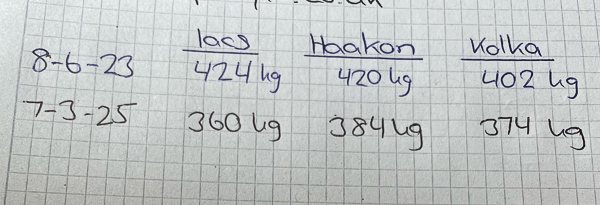 Iacs Haakon Kolka
8-6-23 424 kg 420 kg 402 kg
7-3-25 360 kg 384 kg 374 kg